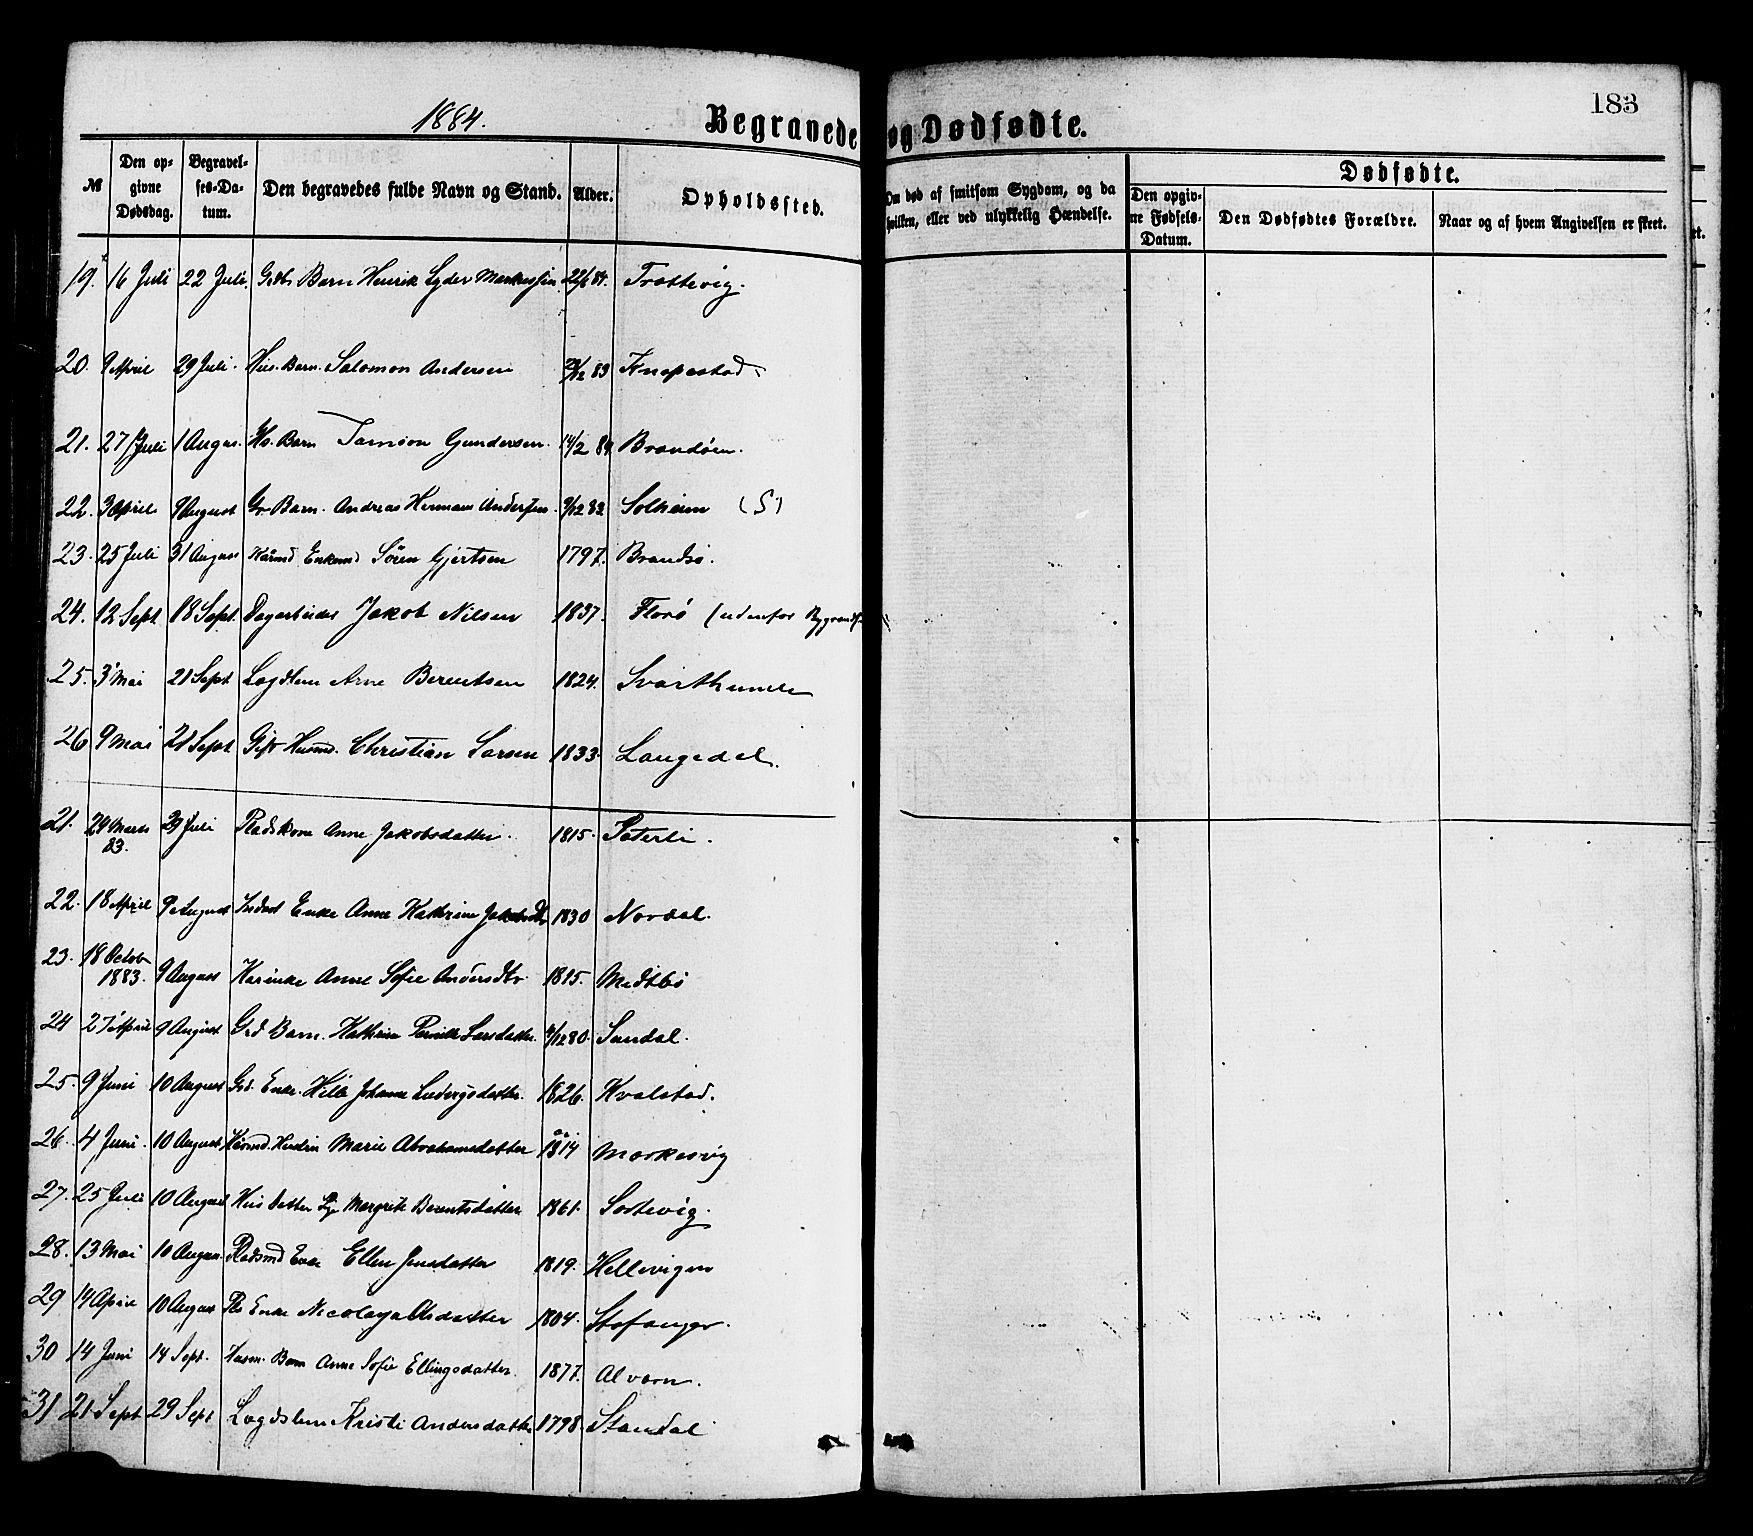 1884.
183
Begravede og Dødfødte.
№
Den opgivne Dødsdag.
Begravelses-Datum.
Den begravedes fulde Navn og Stand.
Alder.
Opholdssted.
Om død af smitsom Sygdom, og da hvilken, eller ved ulykkelig Hændelse.
Dødfødte.
Den opgivne Fødsels-Datum.
Den Dødfødtes Forældre.
Naar og af hvem Angivelsen er skeet.
19. 16 Juli 22 Juli. Barn Henrik Lyder 22/6 84.
20. 9 April 29 Juli. Hus. Barn. Salomon Andersen 83
21. 27 Juli 1 Augus. Hs. Barn Gundersen. 14/2 84 Brandøen.
22. 3 April 9 August Gr Barn. Andreas Herman Anderssen. 9/12 82 Solheim (S)
23. 25 Juli 31 August Enkemd Sören Gjertsen 1797. Brandsö.
24. 12 Sept 18 Sept. Dagarbeider Jakob Nilsen 1837. Florö (udenfor
25. 3 Mai 21 Sept Lægdslem Arne Berentsen 1824. Svarthumle
26 9 Mai 21 Sept Gift Husmd. Christian Larsen 1833. Langedal.
21. 24 Marts 83. 29 Juli Pladskone Anne Jakobsdatter. 1815.
22. 18 April 9 August Enke Anne Kathrine 1830 Nordal.
23. 18 Octobr 1883. 9 August Anne Sofie Andersdtr 1815. Medtbö
24 27 April 9 August Grd. Barn. Kathrine Pernille Larsdatter. 4/12 80. Sundal.
25. 9 Juni 10 August Grd. Enke. Johanne Ludvigsdatter. 1826. Kvalstad.
26. 4 Juni. 10 August Marie Abrahamsdatter 1814 Markesvig
27. 25 Juli 10 August Hus datter Margrete Berentsdatter 1861.
28. 13 Mai 10 August. Pladsmd Enke Ellen Jensdatter 1819. Hellevigen
29 14 April 10 August Pls Enke Nicolaya Olsdatter 1804. Stafanger.
30 14 Juni 14 Sept. Husm. Barn Anne Sofie Ellingsdatter. 1877. Alvorn.
31 21 Sept 29 Sept Lægdslem Kristi Andersdatter 1798. Standal